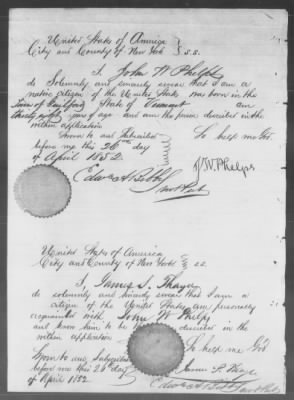 United States of America
City and County of New York } S.S.
I, John W Phelps
do Solemnly and sincerely swear that I am a
native citizen of the United States was born in the
Town of Guilford State of Vermont am
years of age and am the person described in the
within application
Sworn to and Subscribed
before me this 26th day
of April 1852.
So help me God.
J W. Phelps
United States of America
City and County of New York } S.S.
I, James S. Thayer
do solemnly and sincerely swear that I am a
citizen of the United States am personally
acquainted with John W Phelps
and know him to be the described in the
within application
So help me God
Sworn and Subscribed
before me this 26th day
of April 1852.
James S. Thayer